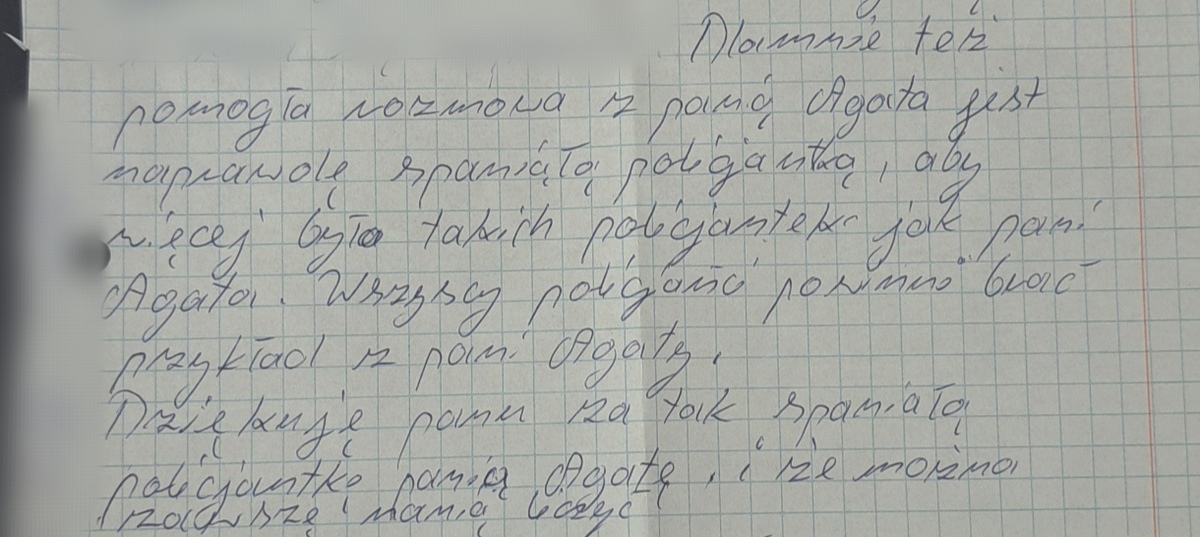 Dlamnie też
pomogła rozmowa z panią Agata jest
naprawdę spaniałą policjantką, aby
więcej było takich policjantek jak pani
Agata. Wszyscy policjańci powinno brać
przykład z pani Agaty.
Dziękuję panu za tak spaniałą
policjantkę panią Agatę, i że można
zawszę nanią liczyć